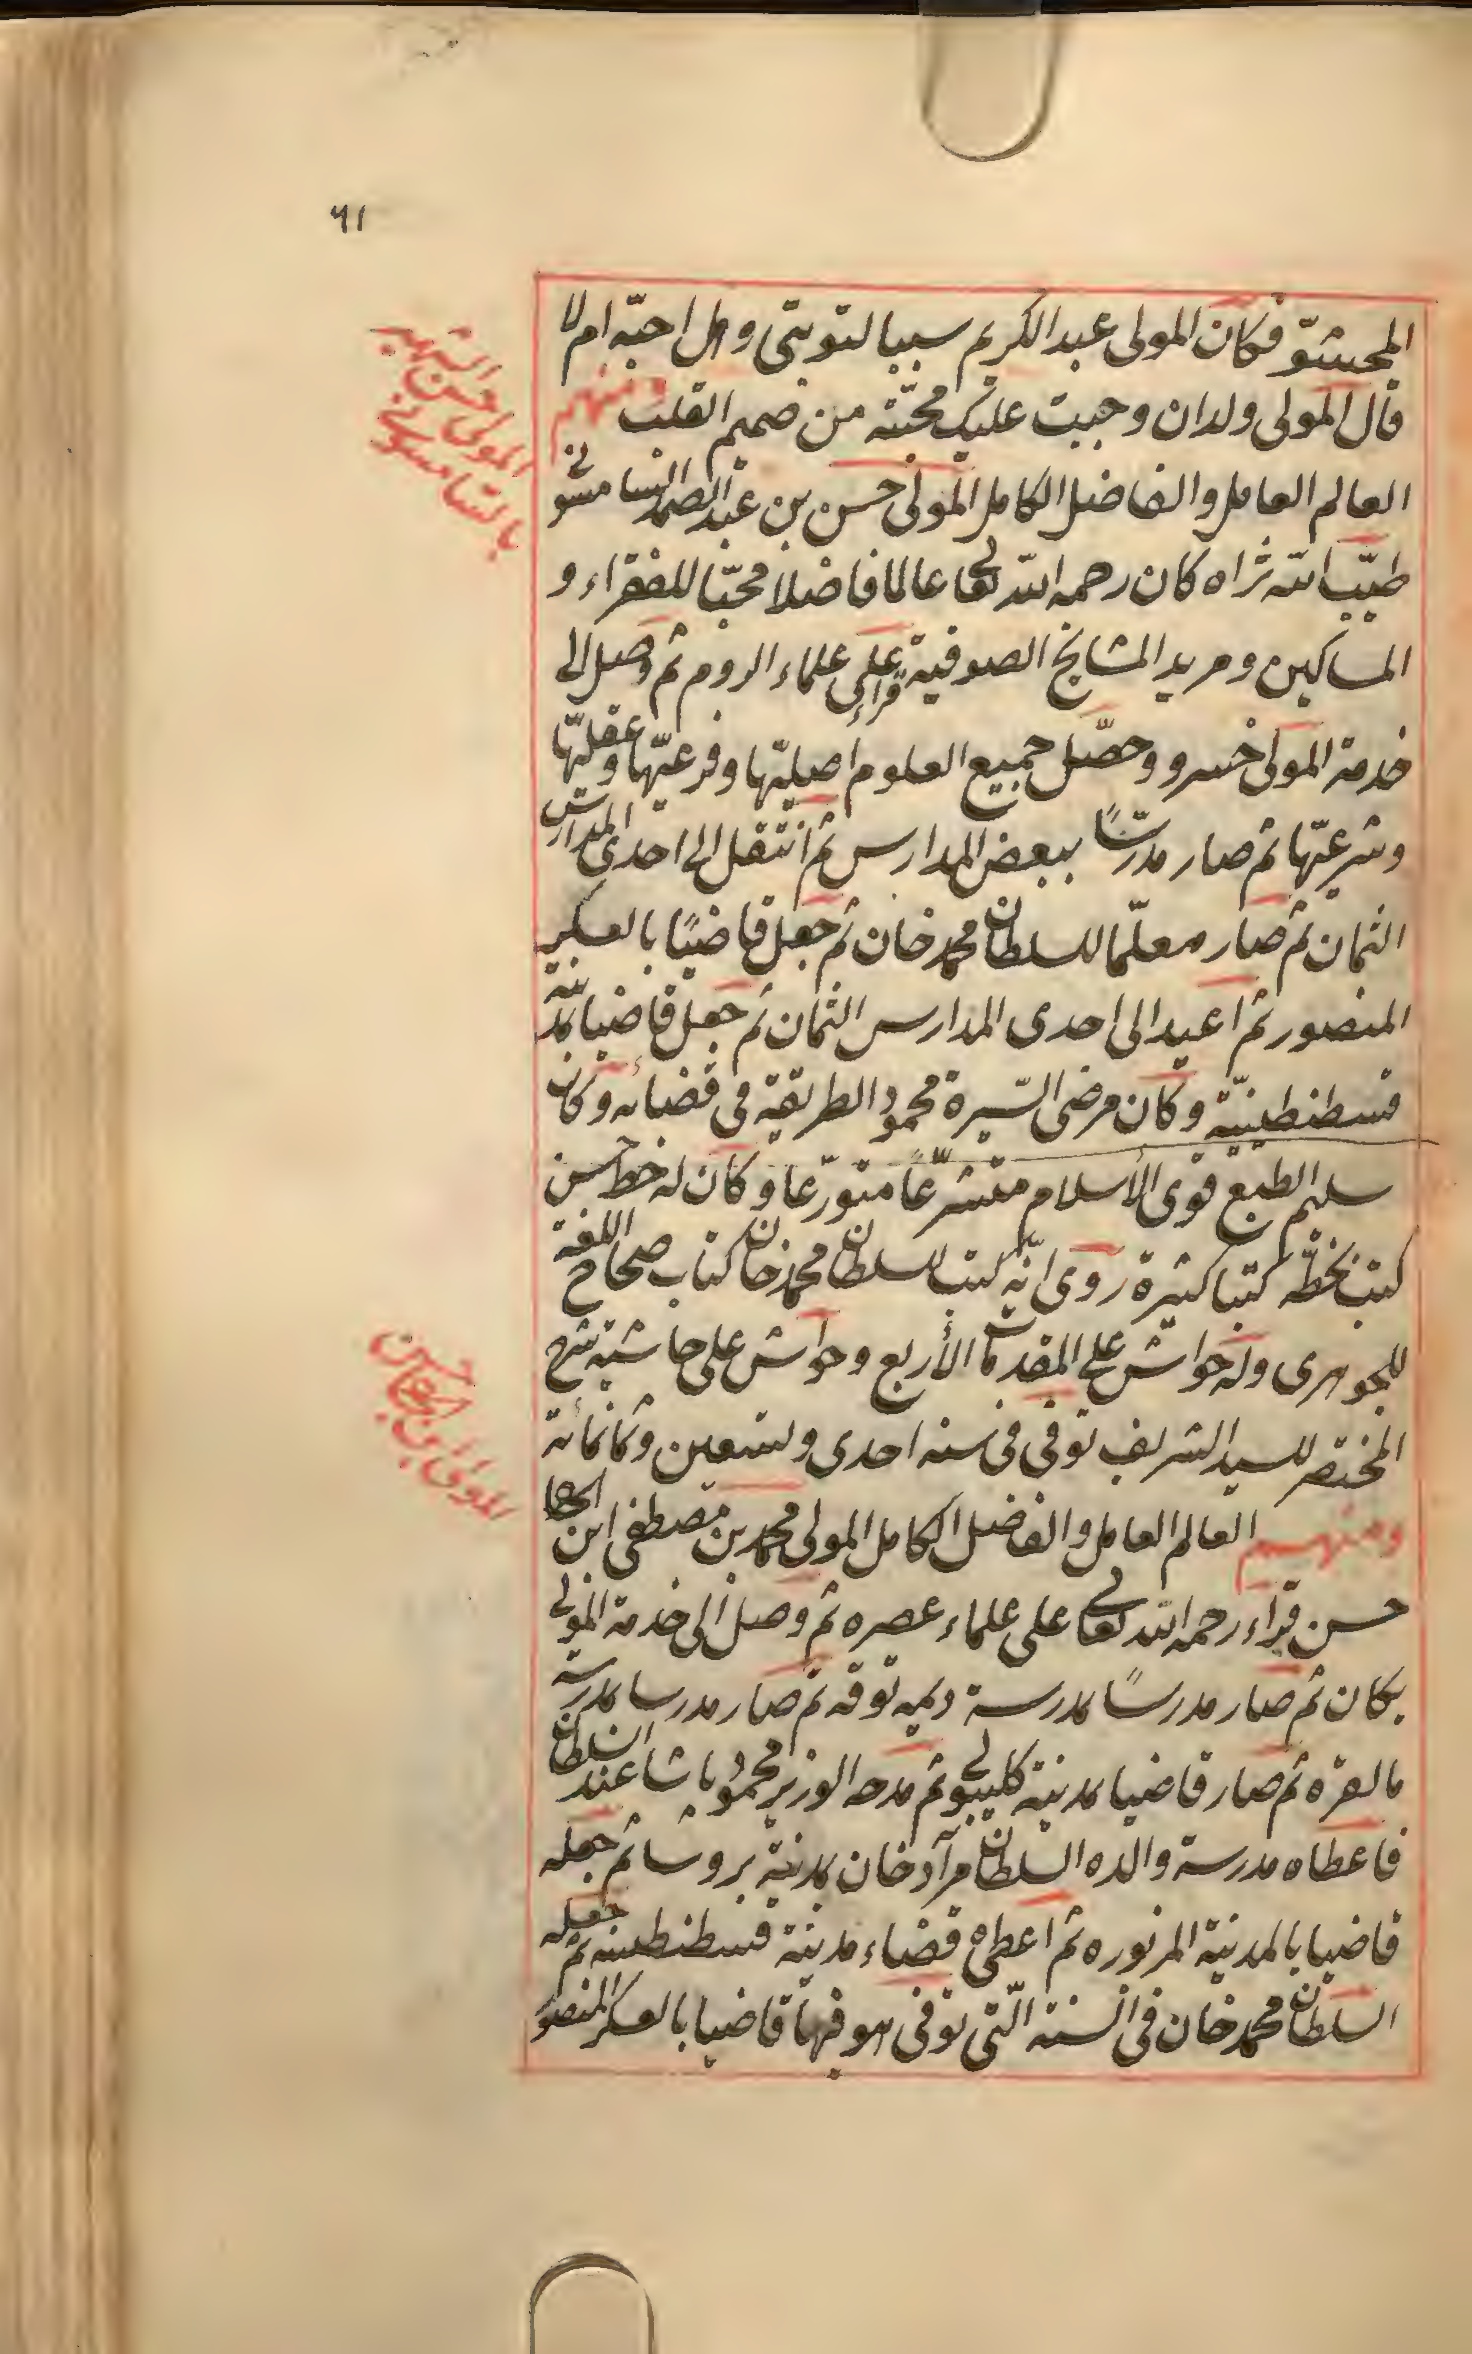 ٦١
المحشوّ فكان المولى عبد الكريم سببا لتوبتى وهل احبّه ام لا
قال المولى ولدان وجبت عليك محبّته من صميم القلب ومنهم
العالم العامل والفاضل الكامل المولى حسن بن عبد الصمد السامسونى
طيّب الله ثراه كان رحمه الله تعالى عالما فاضلا محبّا للفقراء و
المساكين ومريد المشايخ الصوفية قراء على علماء الروم ثم وصل الى
خدمة المولى خسرو وحصّل جميع العلوم اصليّتها وفرعيّتها وعقليّتها
وشرعيّتها ثم صار مدرّسًا ببعض المدارس ثم انتقل الى احدى المدارس
الثمان ثم صار معلّما للسلطان محمد خان ثم جعل قاضيًا بالعسكر
المنصور ثم اعيد الى احدى المدارس الثمان ثم جعل قاضيا بمدينة
قسطنطينيّة وكان مرضى السّيرة محمود الطريقة فى قضائه وكان
سليم الطبع قوى الأسلام متشرّعًا متورّعا وكان له خط حسن
كتب بخطّه كتبا كثيرة روى انّه كتب للسلطان محمد خان كتاب صحاح اللغة
للجوهرى وله حواش على المقدمات الأربع وحواش على حاشية شرح
المختصر للسيد الشريف توفى فى سنه احدى وتسعين وثمانمائة
ومنهم العالم العامل والفاضل الكامل المولى محمد بن مصطفى ابن الحاج
حسن قراء رحمه الله تعالى على علماء عصره ثم وصل الى خدمة المولى
يكان ثم صار مدرسًا بمدرسة ديمه توقه ثم صار مدرسا بمدرسة
مالغره ثم صار قاضيا بمدينة كليبولى ثم مدحه الوزير محمود باشا عند السلطان
فاعطاه مدرسة والده السلطان مرآد خان بمدينة بروسا ثم جعله
قاضيا بالمدينة المزبوره ثم اعطاه قضاء مدينة قسطنطينه ثم جعله
السلطان محمد خان فى السنه الّتى توفى هو فيها قاضيا بالعسكر المنصور
المولى حسن الشهير
بالسامسونى
المولى ابن الحاج حسن